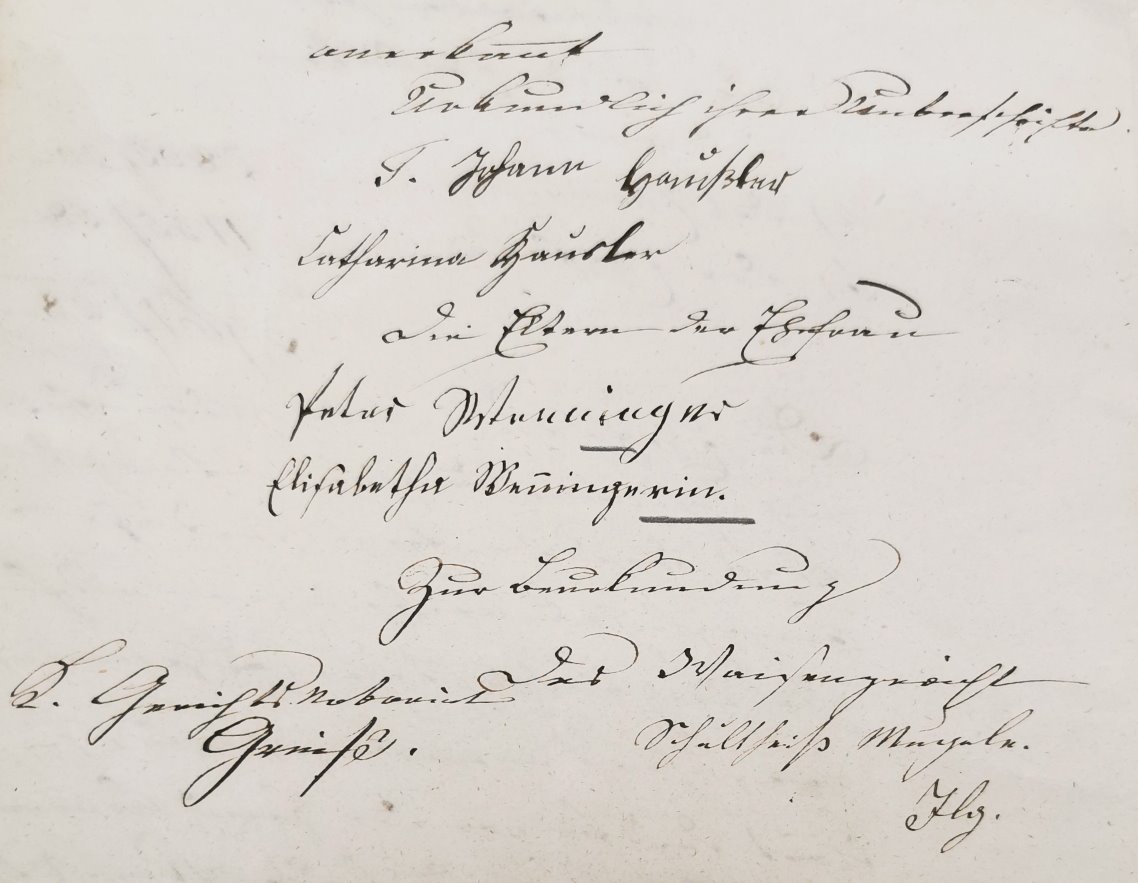 anerkannt
Urkundlich ihrer Unterschrifte
T. Johann Haußler
Catharina Hausler
Die Eltern der Ehefrau
Peter Wenninger
Elisabetha Weningerin.
Zur Beurkundung
K. Gerichts Notariat Das Waisengericht
Schultheiß Mugele.
Ilg.